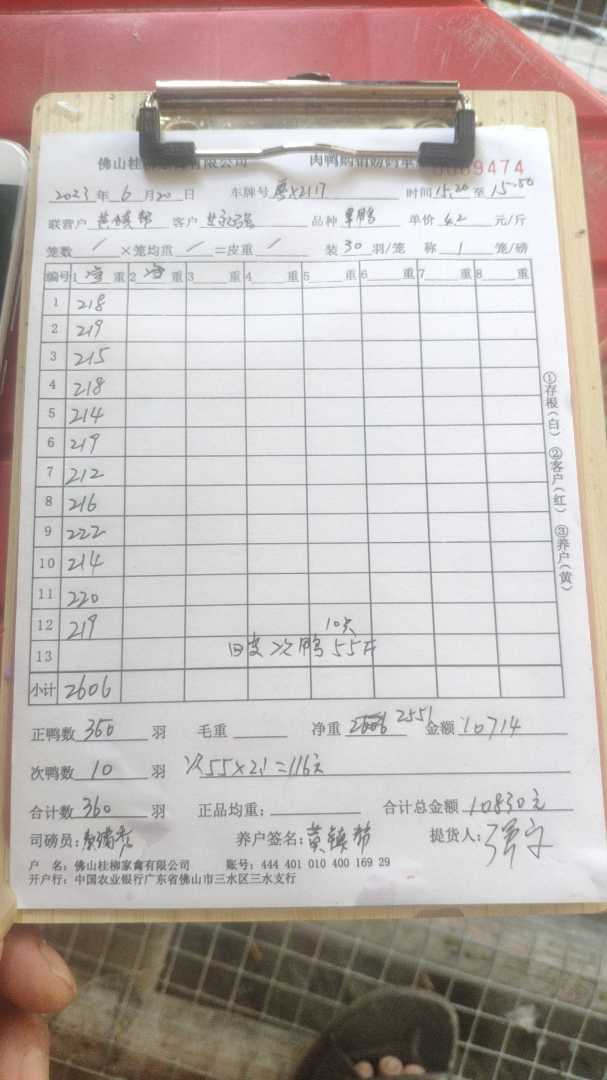 佛山桂柳家禽有限公司 肉鸭购销磅码单 0009474
2023 年 6 月 20 日 车牌号 粤X2117 时间 15:20 至 15:50
联营户 黄镇帮 客户 品种 单价 4.2 元/斤
笼数 / ×笼均重 / =皮重 / 装 30 羽/笼 称 1 笼/磅
编号 1 净 重 2 净 重 3 重 4 重 5 重 6 重 7 重 8 重
1 218
2 219
3 215
4 218
5 214
6 219
7 212
8 216
9 222
10 214
11 220
12 219 10只
13 次鸭 55斤
小计 2606
正鸭数 350 羽 毛重 净重 2606 2551 金额 10714
次鸭数 10 羽 次55×2.1=116元
合计数 360 羽 正品均重: 合计总金额 10830元
司磅员: 养户签名: 黄镇帮 提货人:
户 名: 佛山桂柳家禽有限公司 账号: 444 401 010 400 169 29
开户行: 中国农业银行广东省佛山市三水区三水支行
①存根(白) ②客户(红) ③养户(黄)